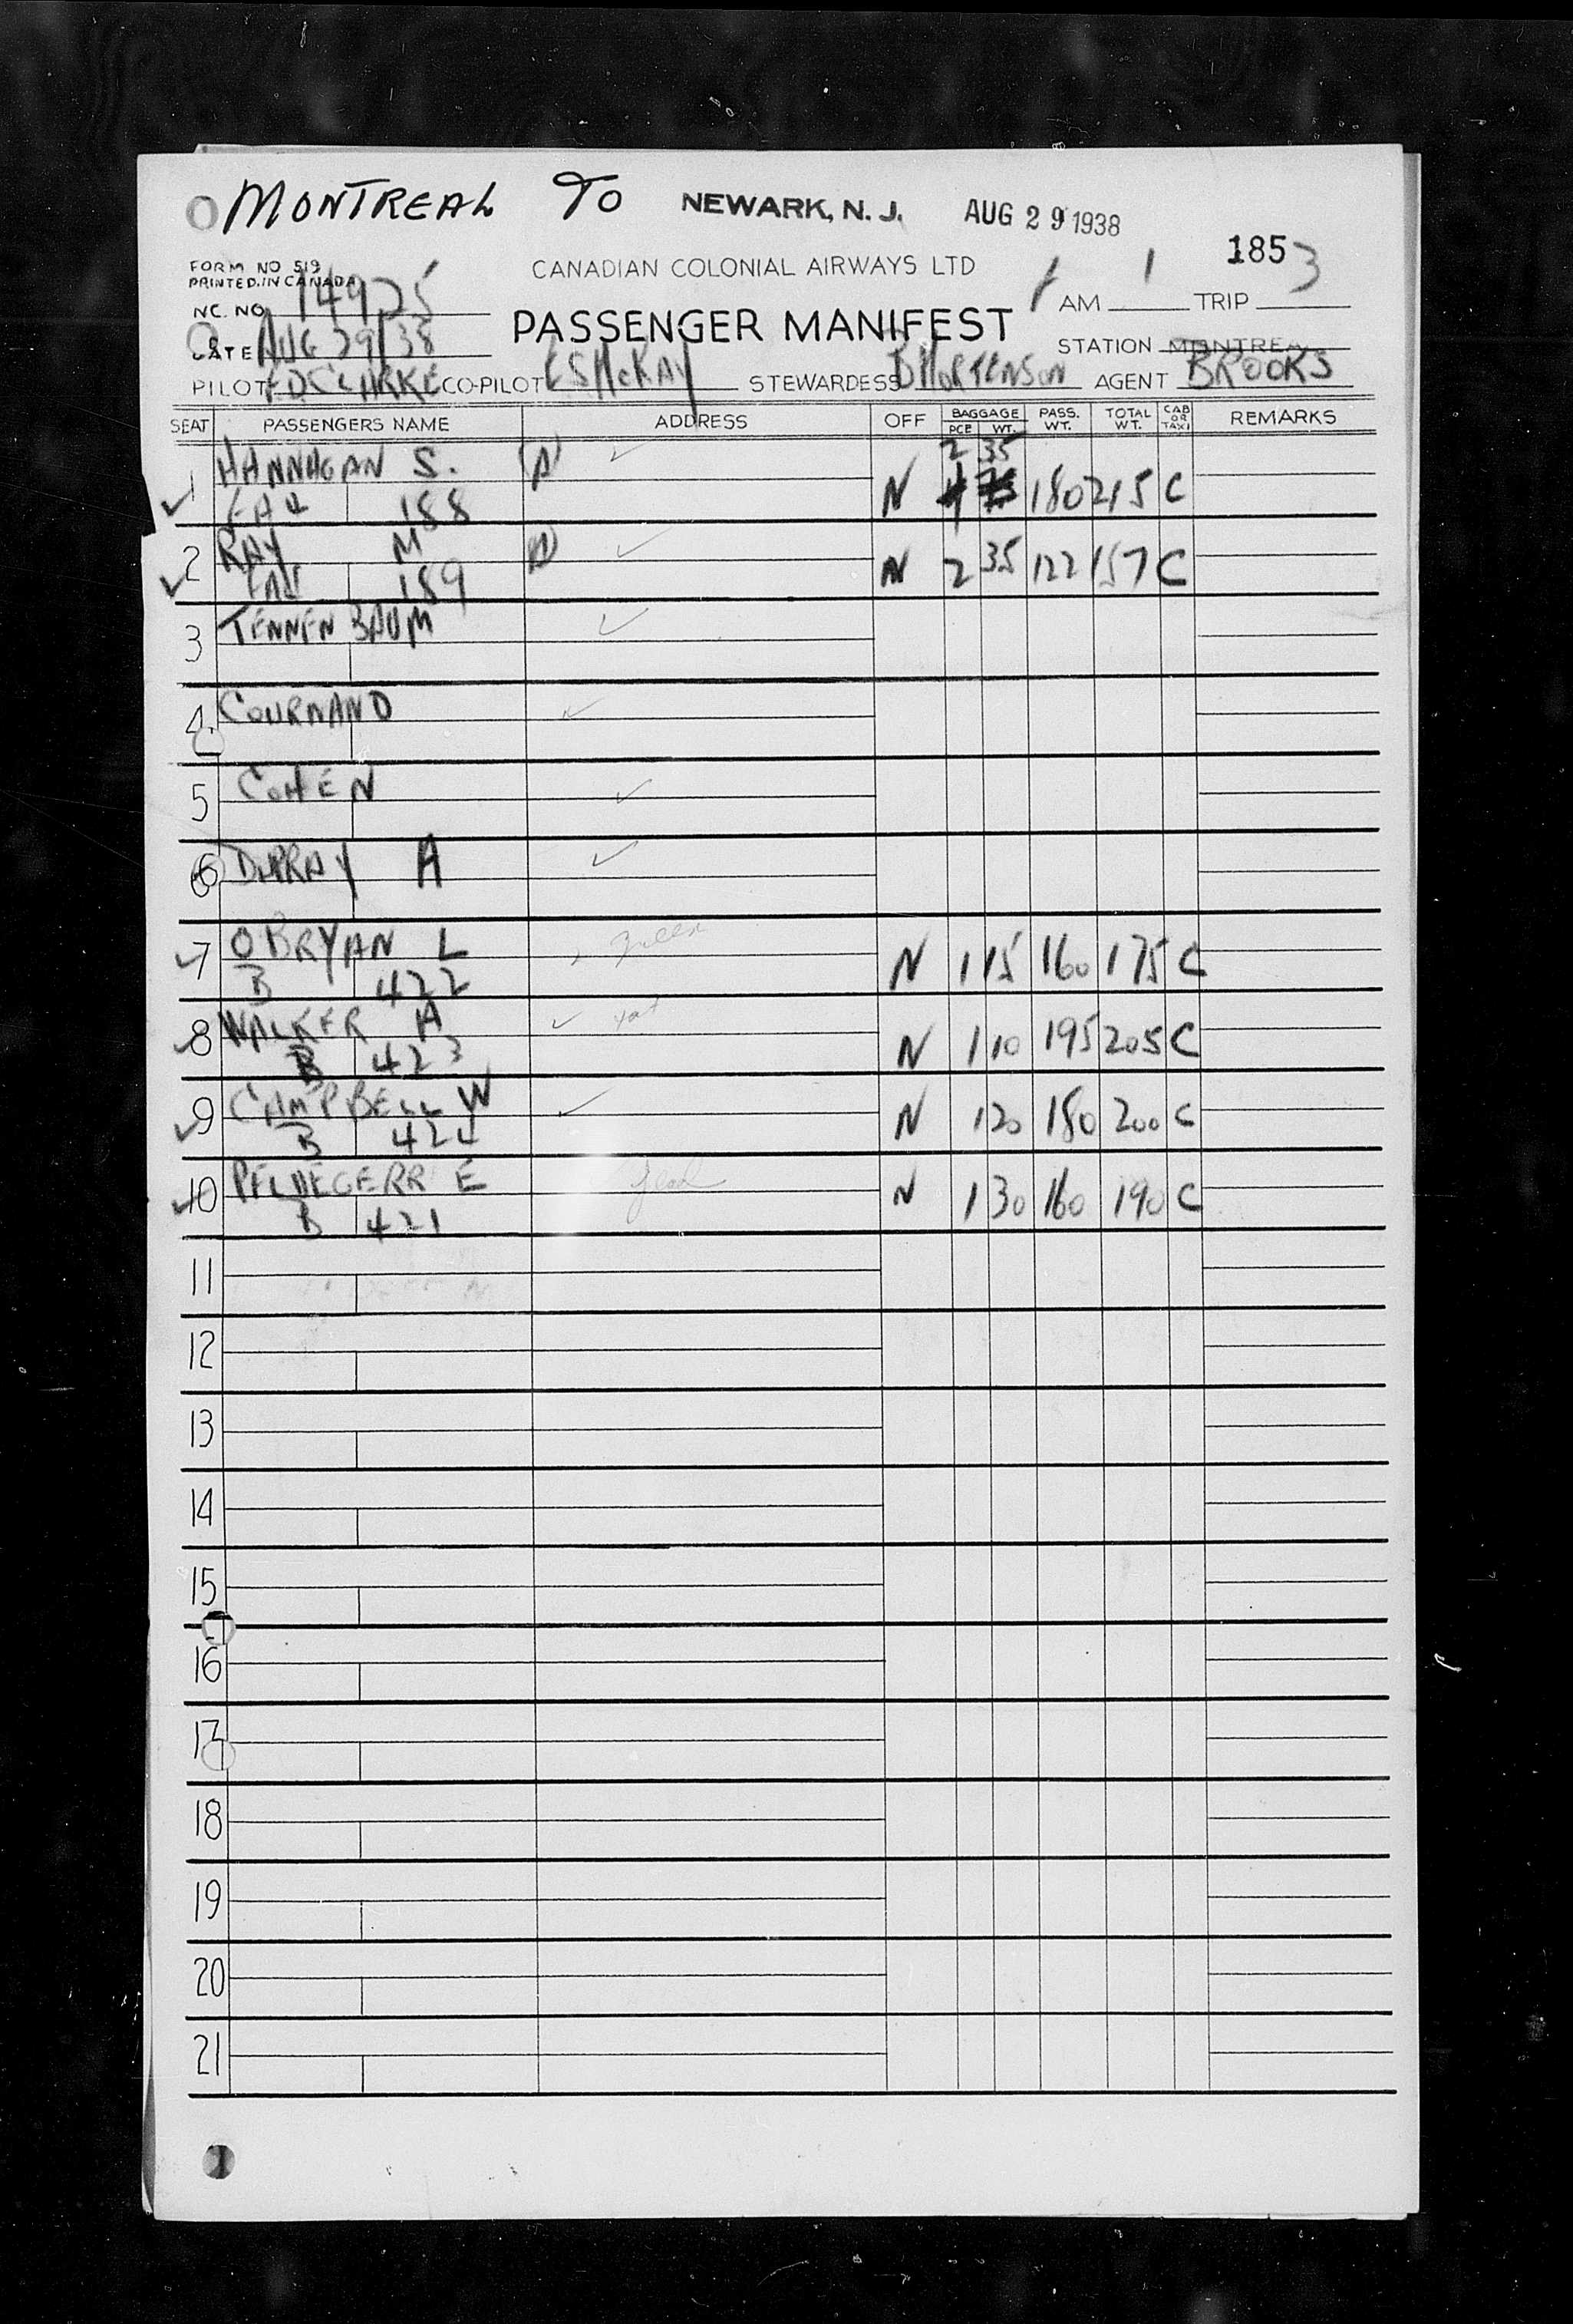 MONTREAL TO NEWARK, N. J. AUG 29 1938
1853
FORM NO 519
PRINTED IN CANADA
CANADIAN COLONIAL AIRWAYS LTD
NC. NO. 14925
PASSENGER MANIFEST
AM 1 TRIP
DATE AUG 29/38
STATION MONTREAL
PILOT F D CLARKE CO-PILOT E S McKAY STEWARDESS B MORTENSON AGENT BROOKS
SEAT PASSENGERS NAME ADDRESS OFF BAGGAGE PCE WT. PASS. WT. TOTAL WT. CAB OR TAXI REMARKS
1 HANNAGAN S. (A) 2 35
188 N 180 215 C
2 RAY M N 2 35 122 157 C
189
3 TENNENBAUM
4 COURNAND
5 COHEN
6 DUPRAY A
7 OBRYAN L N 1 15 160 175 C
B 422
8 WALKER A N 1 10 195 205 C
B 423
9 CAMPBELL W N 1 20 180 200 C
B 424
10 E N 1 30 160 190 C
B 421
11
12
13
14
15
16
17
18
19
20
21